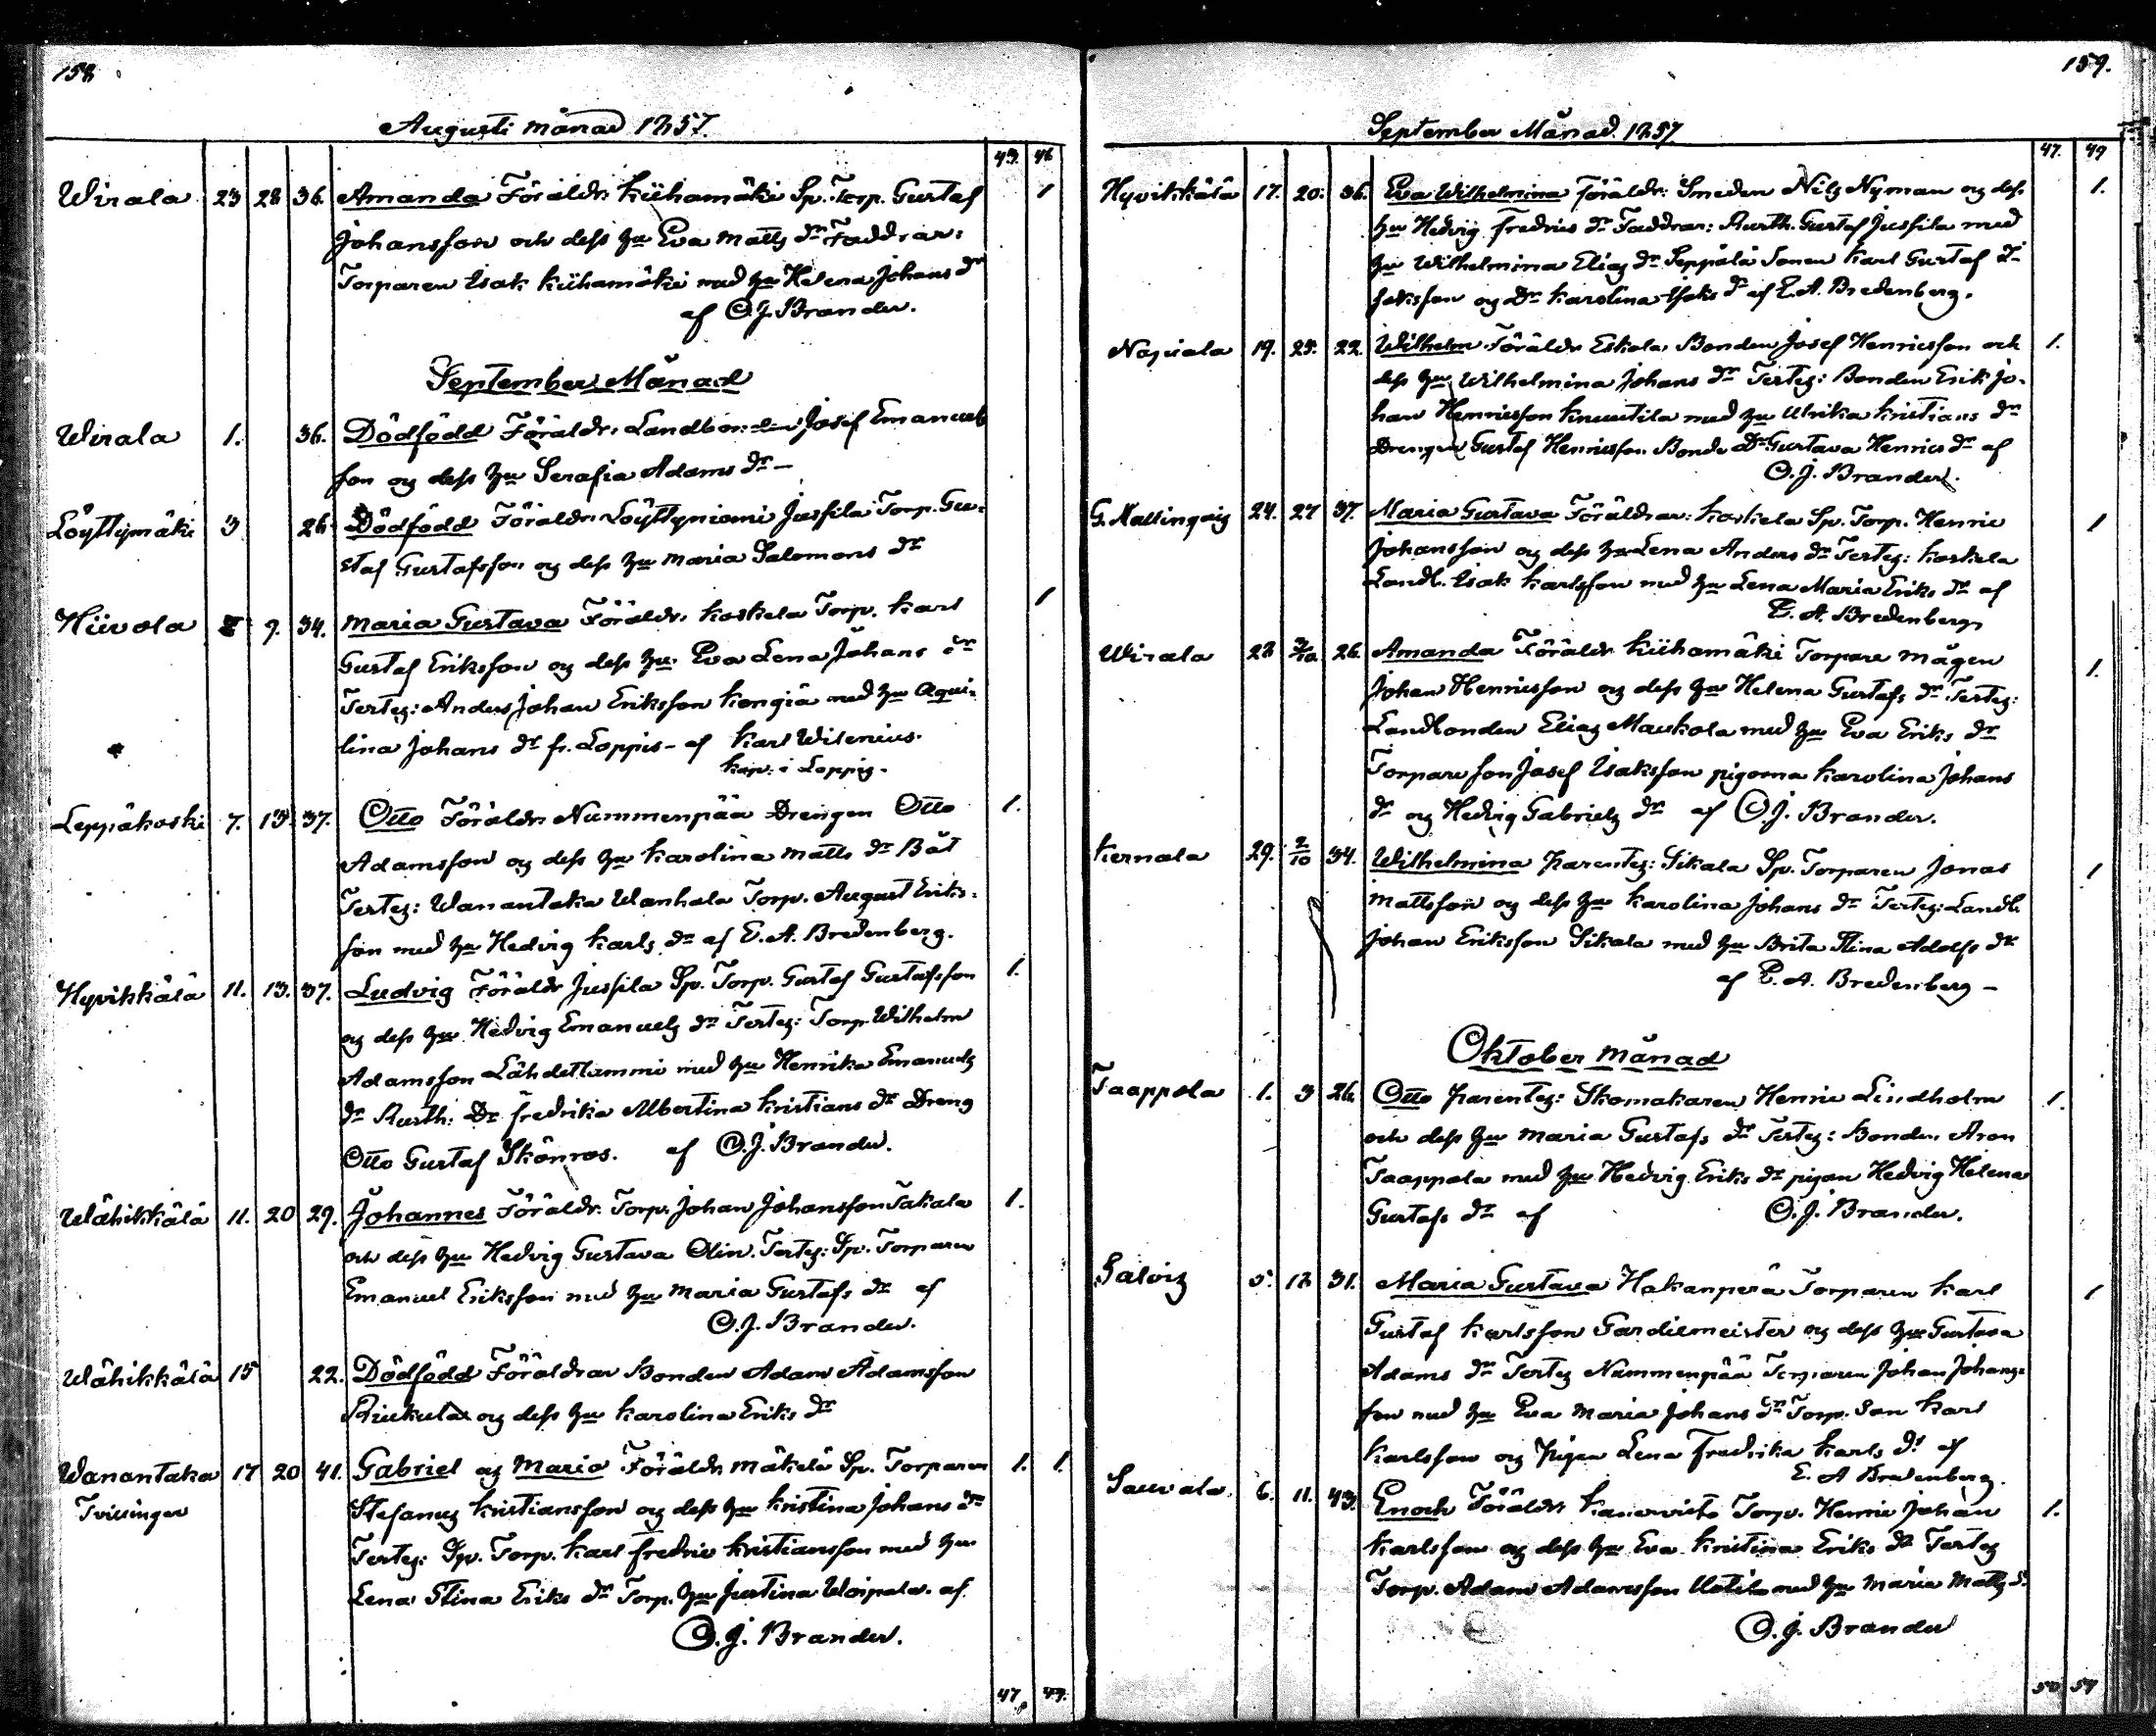 158
Augusti månad 1857.
43. 46
Wirala 23 28 36. Amanda Föräldr. Kiihamäki Sp. Torp. Gustaf 1
Johansson och dess hu Eva Matts dr Faddrar:
Torparen Isak Kiihamäki med hu Helena Johans dr
af O.J. Brander.
September Månad
Wirala 1. 36. Dödfödd Föräldr. Landbonden Josef Emanuels
son og dess hu Serafia Adams dr –
Löyttymäki 3 26 Dödfödd Föräldr. Löyttyniemi Jussila Torp. Gu-
staf Gustafsson og dess hu Maria Salomons dr
Hiivola 9. 34. Maria Gustava Föräldr. Koskela Torp. Karl 1
Gustaf Eriksson og dess hu. Eva Lena Johans dr
Testeg: Anders Johan Eriksson Kongiä med hu Aqui-
lina Johans dr fr. Loppis – af Karl Wilenius.
kap. i Loppis.
Leppäkoski 7. 13. 37. Otto Föräldr. Nummenpää Drengen Otto 1.
Adamsson og dess hu Karolina Matts dr Båt
Testeg: Wanantaka Wanhala Torp. August Eriks-
son med hu Hedvig Karls dr af E. A. Bredenberg.
Hyvikkälä 11. 13. 37. Ludvig Föräldr Jussila Sp. Torp. Gustaf Gustafsson 1.
og dess hu Hedvig Emanuels dr Testeg: Torp. Wilhelm
Adamsson Lähdetlammi med hu Henrika Emanuels
dr Rusth: Dr Fredrika Albertina Kristians dr Dreng
Otto Gustaf Skönros. af O.J. Brander.
Wähikkälä 11. 20 29. Johannes Föräldr. Torp. Johan Johansson Takala 1.
och dess hu Hedvig Gustava Olin. Testeg: Sp. Torparen
Emanuel Eriksson med hu Maria Gustafs dr af
O.J. Brander.
Wähikkälä 15 22. Dödfödd Föräldrar Bonden Adam Adamsson
og dess hu Karolina Eriks dr
Wanantaka 17 20 41. Gabriel og Maria Föräldr. Mäkelä Sp. Torparen 1. 1.
Tvillingar Stefanus Kristiansson og dess hu Kristina Johans dr
Testeg: Sp. Torp. Karl Fredric Kristiansson med hu
Lena Stina Eriks dr Torp. hu Justina Uoipala. af
O.J. Brander.
47 49.
159.
September Månad. 1857.
47. 49
Hyvikkälä 17. 20. 36. Eva Wilhelmina Föräldr: Smeden Nils Nyman og dess 1.
hu Hedvig Fredrics dr Faddrar: Rusth. Gustaf Jussila med
hu Wilhelmina Elias dr Seppälä Sonen Karl Gustaf
og Dr Karolina Isaks dr af E. A. Bredenberg.
Napiala 19. 25. 22. Wilhelm Föräldr. Eskola Bonden Josef Henricsson och 1.
dess hu Wilhelmina Johans dr Testeg: Bonden Erik Jo-
han Henricsson Knuutila med hu Ulrika Kristians dr
Drengen Gustaf Henricsson Bonde Dr Gustava Henrics dr af
O.J. Brander.
G. Mallingaig 24. 27 37. Maria Gustava Föräldrar: Koskela Sp. Torp. Henric 1
Johansson og dess hu Lena Anders dr Testeg: Koskela
Landb. Isak Karlsson med hu Lena Maria Eriks dr af
E. A. Bredenberg
Wirala 28 3/10 26. Amanda Föräldr. Kiihamäki Torpare mågen 1.
Johan Henricsson og dess hu Helena Gustafs dr Testeg:
Landbonden Elias Maukola med hu Eva Eriks dr
Torpare son Josef Isaksson pigorna Karolina Johans
dr og Hedvig Gabriels dr af O.J. Brander.
Kernala 29. 2/10 34. Wilhelmina Parenteg: Sikala Sp. Torparen Jonas 1
Mattsson og dess hu Karolina Johans dr Testeg: Landb.
Johan Eriksson Sikala med hu Brita Stina Adolfs dr
af E. A. Bredenberg –
Oktober månad
Taappola 1. 3 26. Otto Parenteg: Skomakaren Henric Lindholm 1.
och dess hu Maria Gustafs dr Testeg: Bonden Aron
Taappola med hu Hedvig Eriks dr pigan Hedvig Helena
Gustafs dr af O.J. Brander.
Salois 5. 12 31. Maria Gustava Hakanperä Torparen Karl 1
Gustaf Karlsson Gardiemeister og dess hu Gustava
Adams dr Testeg Nummenpää Torparen Johan Johans-
son med hu Eva Maria Johans dr Torp. Son Karl
Karlsson og Pigan Lena Fredrika Karls dr af
E. A Bredenberg.
Sauvala 6. 11. 43. Enoch Föräldr. Kanervisto Torp. Henric Johan 1.
Karlsson og dess hu Eva Kristina Eriks dr Testeg
Torp. Adam Adamsson Uotila med hu Maria Matts d.
O.J. Brander
50 54